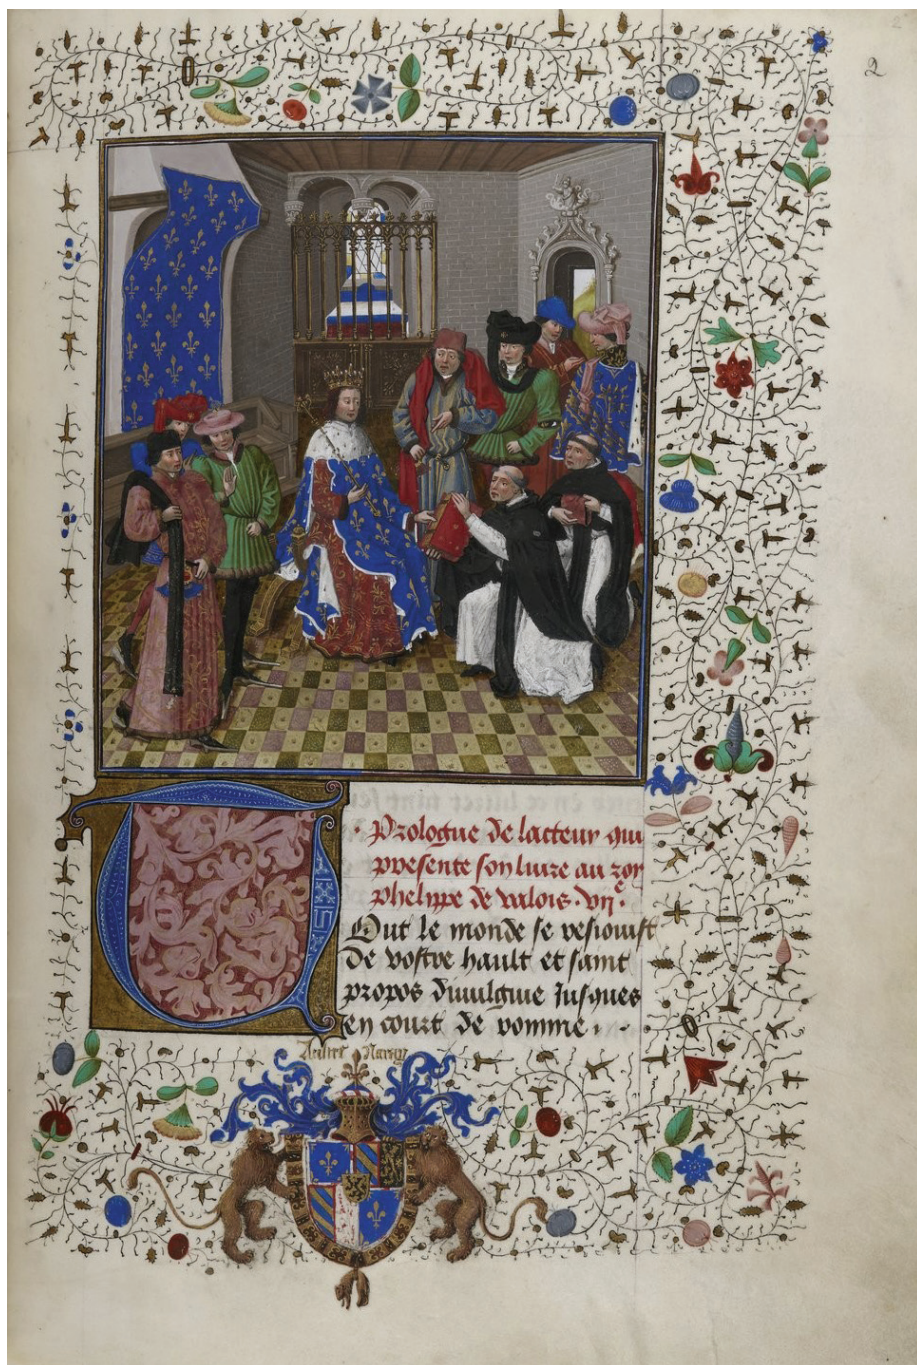 2
Prologue de lacteur qui
presente son liure au roy
phelippe de valois · vjᵉ ·
Tout le monde se resiouist
de vostre hault et saint
propos diuulgue Jusques
en court de romme ·